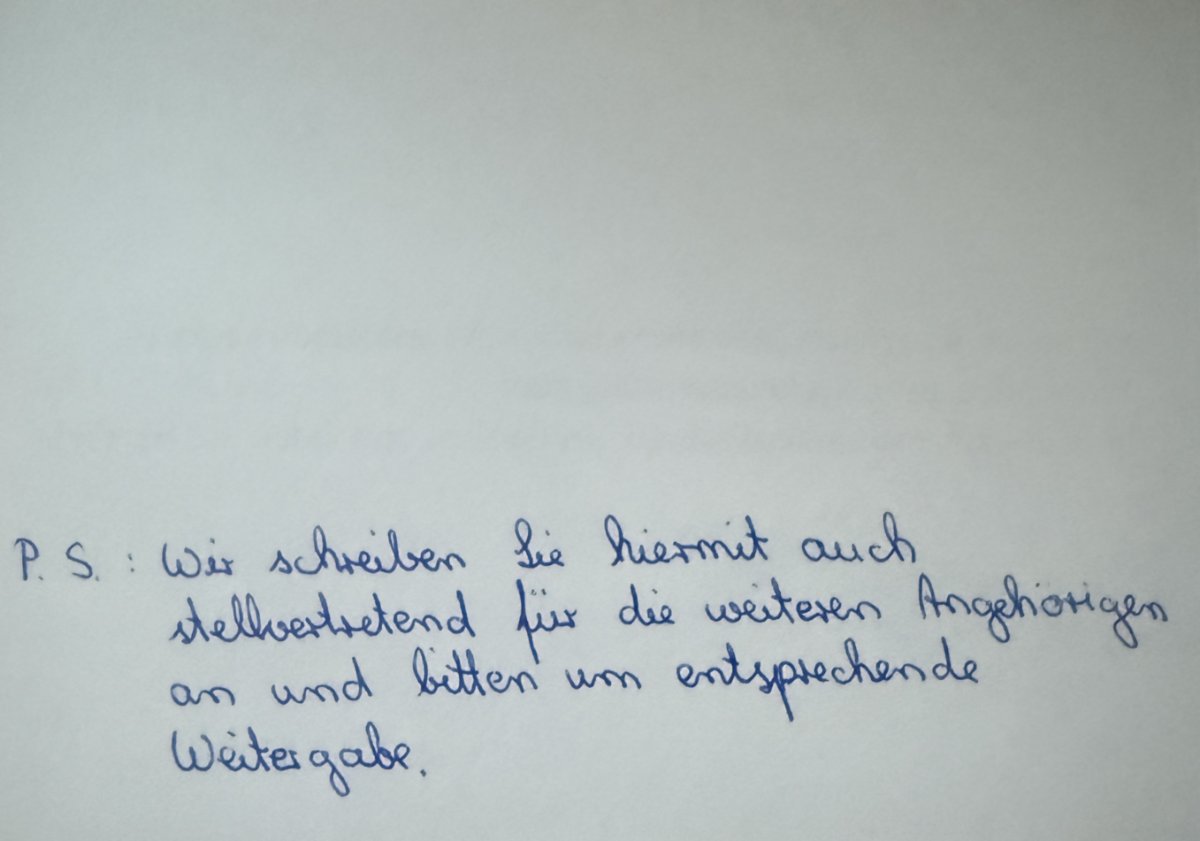 P. S.: Wir schreiben Sie hiermit auch
stellvertretend für die weiteren Angehörigen
an und bitten um entsprechende
Weitergabe.